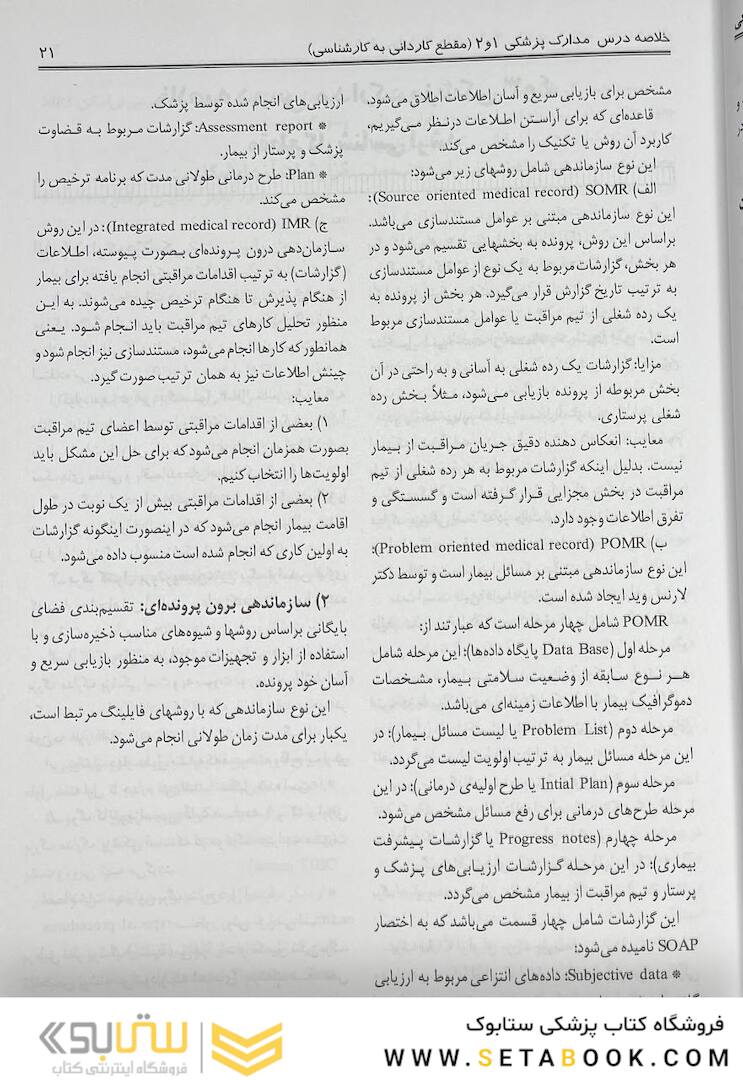 خلاصه درس مدارک پزشکی ۱و۲ (مقطع کاردانی به کارشناسی)
۲۱
مشخص برای بازیابی سریع و آسان اطلاعات اطلاق می‌شود.
قاعده‌ای که برای آراستن اطلاعات درنظر می‌گیریم،
کاربرد آن روش یا تکنیک را مشخص می‌کند.
این نوع سازماندهی شامل روشهای زیر می‌شود:
الف) SOMR (Source oriented medical record):
این نوع سازماندهی مبتنی بر عوامل مستندسازی می‌باشد.
براساس این روش، پرونده به بخشهایی تقسیم می‌شود و در
هر بخش، گزارشات مربوط به یک نوع از عوامل مستندسازی
به ترتیب تاریخ گزارش قرار می‌گیرد. هر بخش از پرونده به
یک رده شغلی از تیم مراقبت یا عوامل مستندسازی مربوط
است.
مزایا: گزارشات یک رده شغلی به آسانی و به راحتی در آن
بخش مربوطه از پرونده بازیابی می‌شود، مثلاً بخش رده
شغلی پرستاری.
معایب: انعکاس دهنده دقیق جریان مراقبت از بیمار
نیست. بدلیل اینکه گزارشات مربوط به هر رده شغلی از تیم
مراقبت در بخش مجزایی قرار گرفته است و گسستگی و
تفرق اطلاعات وجود دارد.
ب) POMR (Problem oriented medical record):
این نوع سازماندهی مبتنی بر مسائل بیمار است و توسط دکتر
لارنس وید ایجاد شده است.
POMR شامل چهار مرحله است که عبارتند از:
مرحله اول (Data Base یا پایگاه داده‌ها): این مرحله شامل
هر نوع سابقه از وضعیت سلامتی بیمار، مشخصات
دموگرافیک بیمار با اطلاعات زمینه‌ای می‌باشد.
مرحله دوم (Problem List یا لیست مسائل بیمار): در
این مرحله مسائل بیمار به ترتیب اولویت لیست می‌گردد.
مرحله سوم (Intial Plan یا طرح اولیه‌ی درمانی): در این
مرحله طرح‌های درمانی برای رفع مسائل مشخص می‌شود.
مرحله چهارم (Progress notes یا گزارشات پیشرفت
بیماری): در این مرحله گزارشات ارزیابی‌های پزشک و
پرستار و تیم مراقبت از بیمار مشخص می‌گردد.
این گزارشات شامل چهار قسمت می‌باشد که به اختصار
SOAP نامیده می‌شود:
* Subjective data: داده‌های انتزاعی مربوط به ارزیابی
ارزیابی‌های انجام شده توسط پزشک.
* Assessment report: گزارشات مربوط به قضاوت
پزشک و پرستار از بیمار.
* Plan: طرح درمانی طولانی مدت که برنامه ترخیص را
مشخص می‌کند.
ج) IMR (Integrated medical record): در این روش
سازمان‌دهی درون پرونده‌ای بصورت پیوسته، اطلاعات
(گزارشات) به ترتیب اقدامات مراقبتی انجام یافته برای بیمار
از هنگام پذیرش تا هنگام ترخیص چیده می‌شوند. به این
منظور تحلیل کارهای تیم مراقبت باید انجام شود. یعنی
همانطور که کارها انجام می‌شود، مستندسازی نیز انجام شود و
چینش اطلاعات نیز به همان ترتیب صورت گیرد.
معایب:
۱) بعضی از اقدامات مراقبتی توسط اعضای تیم مراقبت
بصورت همزمان انجام می‌شود که برای حل این مشکل باید
اولویت‌ها را انتخاب کنیم.
۲) بعضی از اقدامات مراقبتی بیش از یک نوبت در طول
اقامت بیمار انجام می‌شود که در اینصورت اینگونه گزارشات
به اولین کاری که انجام شده است منسوب داده می‌شود.
۲) سازماندهی برون پرونده‌ای: تقسیم‌بندی فضای
بایگانی براساس روشها و شیوه‌های مناسب ذخیره‌سازی و با
استفاده از ابزار و تجهیزات موجود، به منظور بازیابی سریع و
آسان خود پرونده.
این نوع سازماندهی که با روشهای فایلینگ مرتبط است،
یکبار برای مدت زمان طولانی انجام می‌شود.
فروشگاه کتاب پزشکی ستابوک
WWW.SETABOOK.COM
ستابوک
فروشگاه اینترنتی کتاب